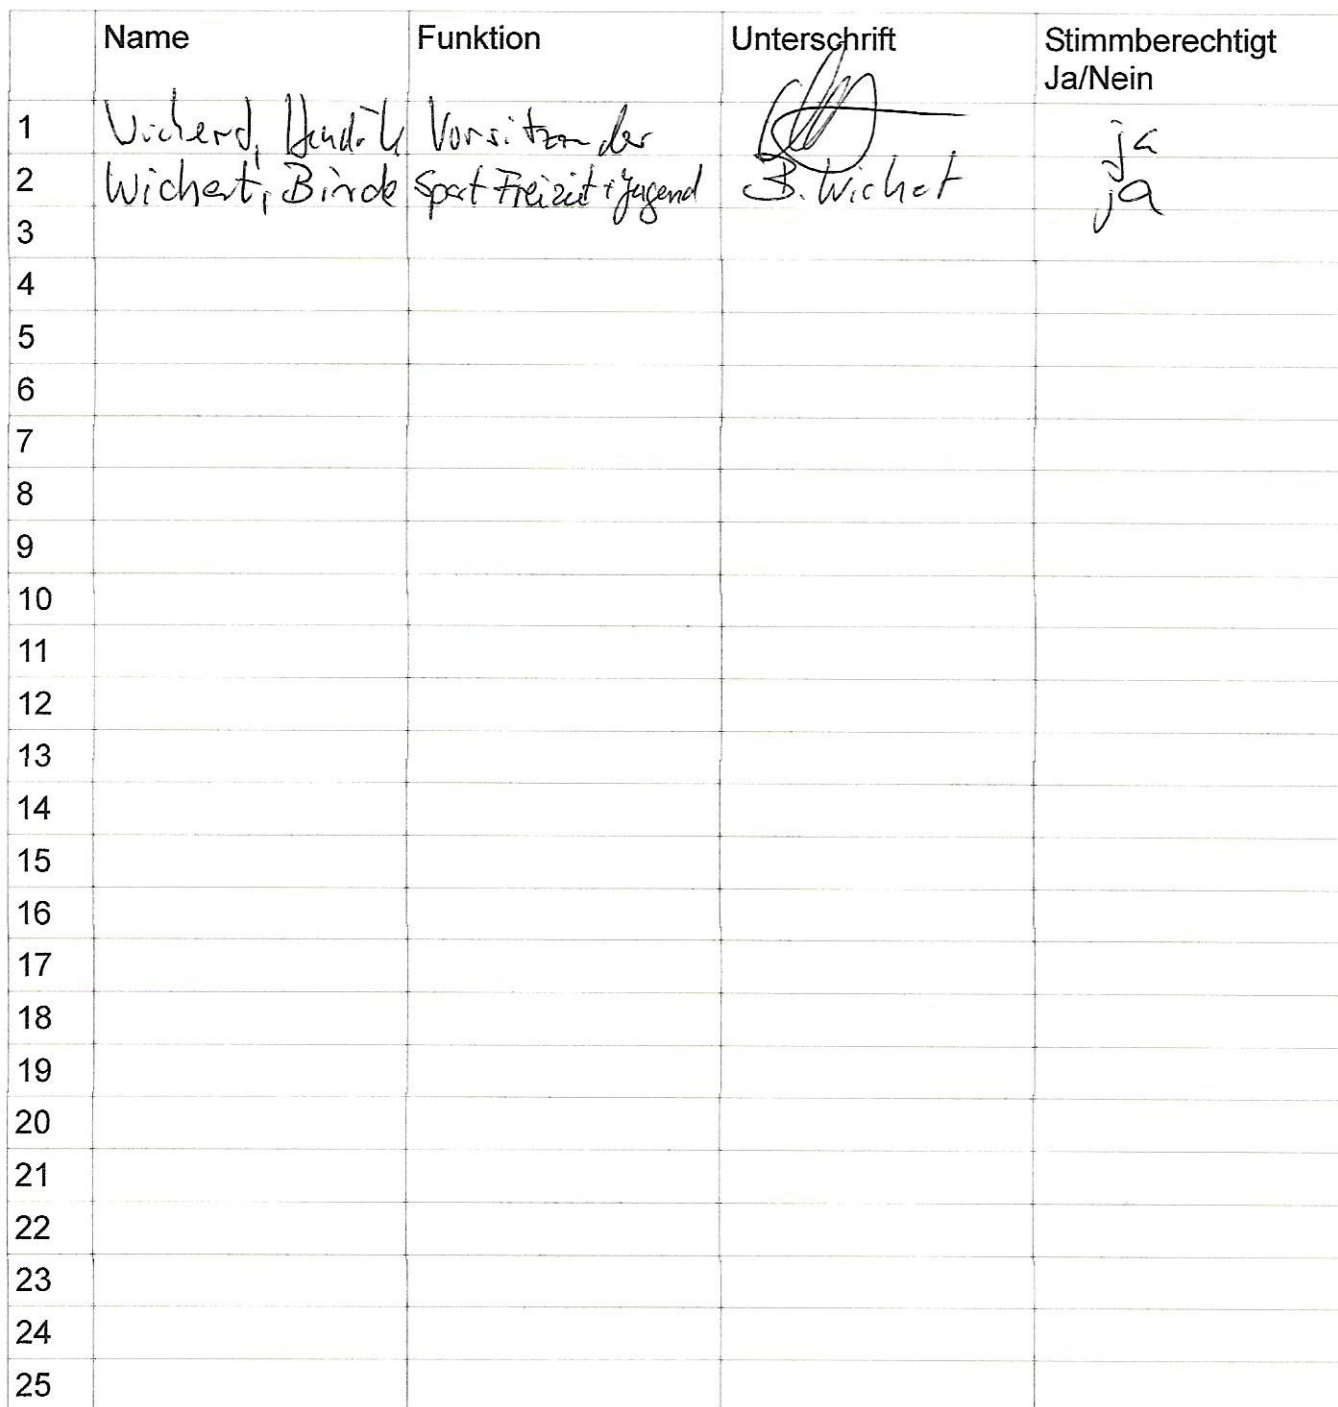 Name Funktion Unterschrift Stimmberechtigt
Ja/Nein
1 Wicherd, Hendrik Vorsitzender ja
2 Wichert, Sport Freizeit + Jugend B. Wichert ja
3
4
5
6
7
8
9
10
11
12
13
14
15
16
17
18
19
20
21
22
23
24
25